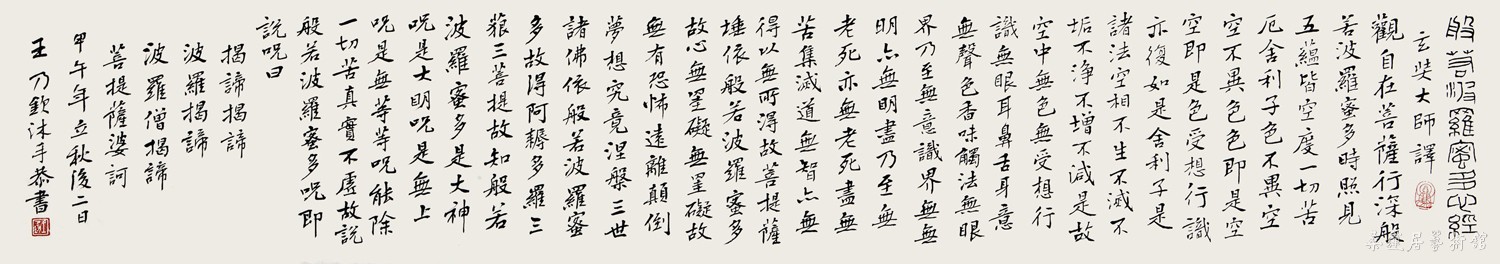 般若波羅蜜多心經
玄奘大師譯
觀自在菩薩行深般
若波羅蜜多時照見
五蘊皆空度一切苦
厄舍利子色不異空
空不異色色即是空
空即是色受想行識
亦復如是舍利子是
諸法空相不生不滅不
垢不淨不增不減是故
空中無色無受想行
識無眼耳鼻舌身意
無聲色香味觸法無眼
界乃至無意識界無無
明亦無明盡乃至無
老死亦無老死盡無
苦集滅道無智亦無
得以無所得故菩提薩
埵依般若波羅蜜多
故心無罣礙無罣礙故
無有恐怖遠離顛倒
夢想究竟涅槃三世
諸佛依般若波羅蜜
多故得阿耨多羅三
藐三菩提故知般若
波羅蜜多是大神
呪是大明呪是無上
呪是無等等呪能除
一切苦真實不虛故說
般若波羅蜜多呪即
說呪曰
揭諦揭諦
波羅揭諦
波羅僧揭諦
菩提薩婆訶
甲午年立秋後二日
王乃欽沐手恭書